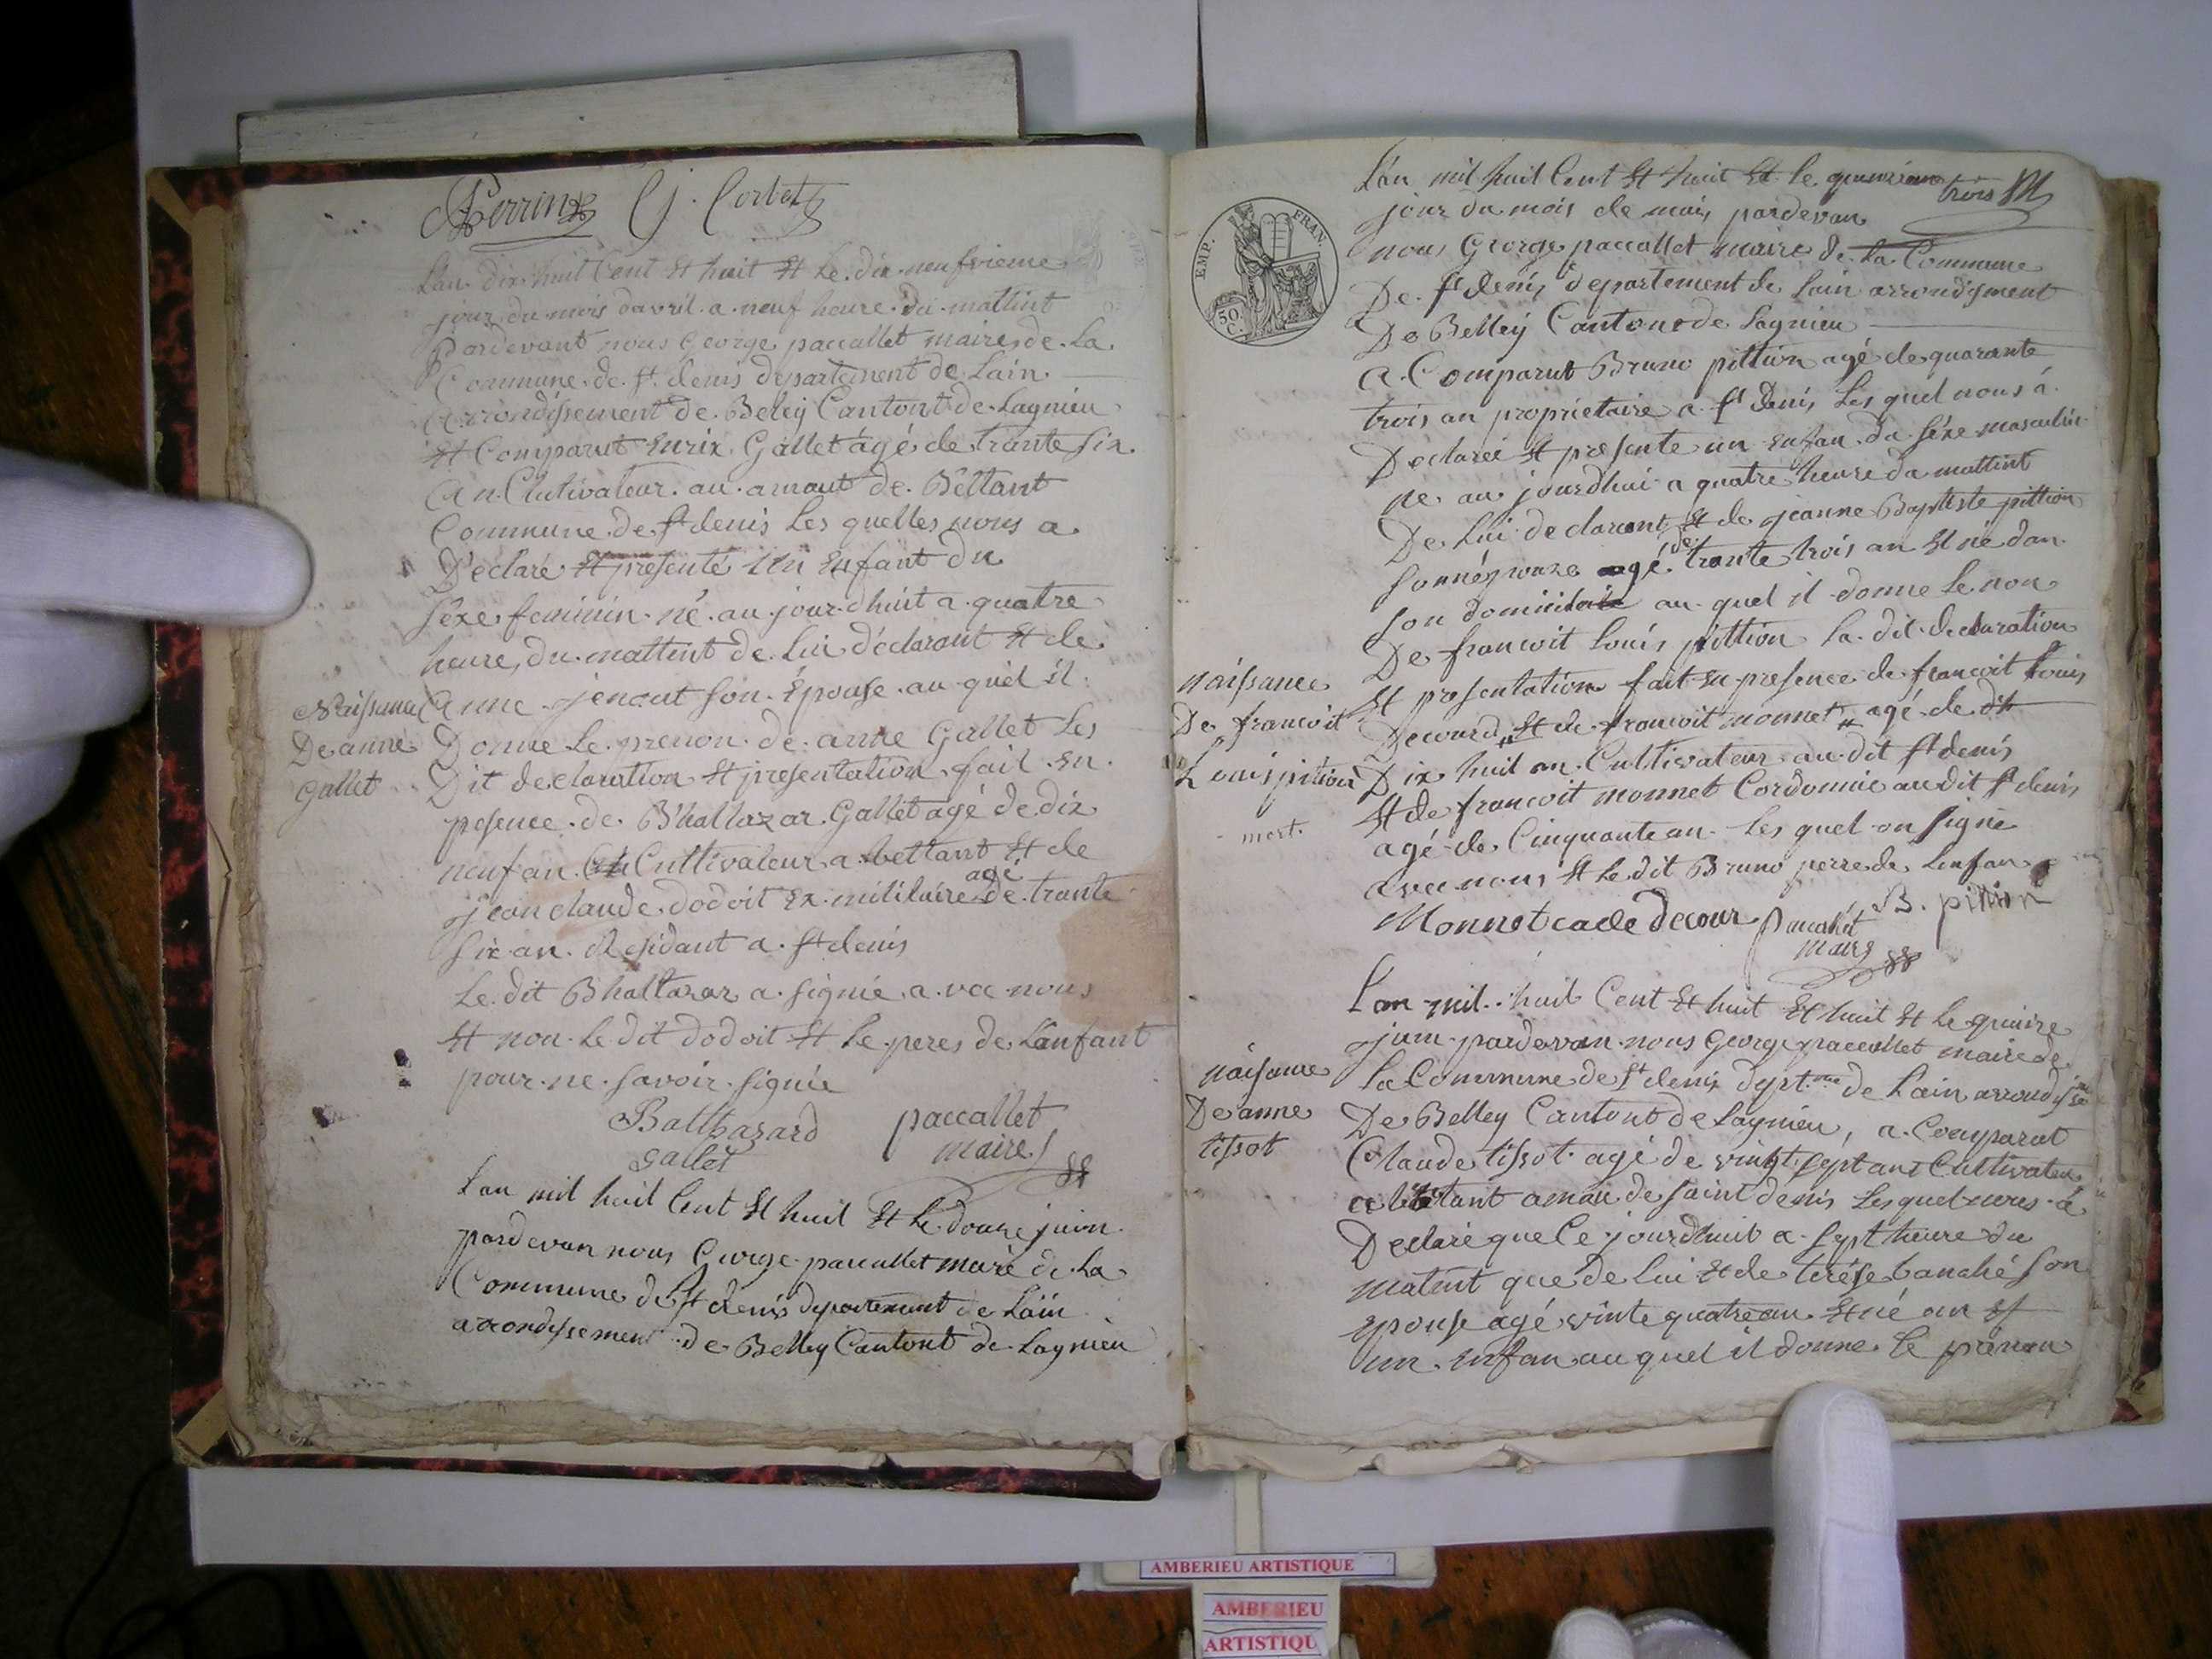 Perrin G. Corbet
L'an dix huit Cent et huit et le dix neufvieme
jour du mois davril a neuf heure du mattint
Pardevant nous George paccallet maire de La
Commune de st denis departement de Lain
Arrondissement de Beley Cantont de Lagnieu
et Comparut Gallet âgé de trante six
an Clutivateur au amaut de Bettant
Commune de st denis les quelles nous a
Déclaré et presenté un enfant du
séxe feminin né au jour dhuit a quatre
heure du mattint de lui déclarant et de
anne jenaut son épouse au quel il
Naissance
De anne
Gallet
Donne le prenon de anne Gallet les
Dit declaration et presentation fait en
presence de Bhaltazar Gallet agé de dix
neuf an Cultivateur a bettant et de
jean claude dodoit ex militaire agé de trante
six an Residant a st denis
Le dit Bhaltazar a signie a vec nous
et non le dit dodoit et le peres de Lanfant
pour ne savoir signie
Balthazard paccallet
Gallet maire
Lan mil huit Cent et huit et le douze juin
pardevan nous George paccallet maire de La
Commune de st denis departement de Lain
arrondissement de Belley Cantont de Lagnieu
trois
EMP. FRAN.
50 C.
L'an mil huit Cent et huit et le
jour du mois de mais pardevan
nous George paccallet maire de la Commune
De st denis departement de lain arrondisment
De Belley Cantont de Lagnieu
a Comparut Bruno pittion agé de quarante
trois an proprietaire a st Denis Les quel nous á
Declareé et presente un enfan du séxe masculin
ne au jourdhui a quatre heure du mattint
De Lui declarant et de jeanne Baptiste pittion
son népouze agé de trante trois an et né dan
son domicile au quel il donne le non
De francoit Louis pittion la dit declaration
et presentation fait en presence de francoit Louis
Decourd et de francoit monnet agé de dit
Dix huit an Cultivateur au dit st denis
et de francoit monnet Cordonnie au dit st denis
agé de Cinquante an les quel on signe
avec nous et le dit Bruno perre de Lenfan
naissance
De francoit
Louis pittion
mort.
Monnet cade decour Paccallet B. pittion
maire
L'an mil huit Cent et huit et huit et le quinze
juin pardevan nous George paccallet maire de
La Commune de st denis dept.me de Lain arrondisse
De Belley Cantont de Lagnieu, a Comparut
Claude tissot agé de vingt sept ans Cultivateur
a bettant amau de saint denis les quel nous a
Declaré que Ce jourdhuit a sept heure du
matint que de lui et de terése son
epouse agé vinte quatre an et né
un enfan au quel il donne le prénon
naisance
De anne
tissot
AMBERIEU ARTISTIQUE
AMBERIEU
ARTISTIQU